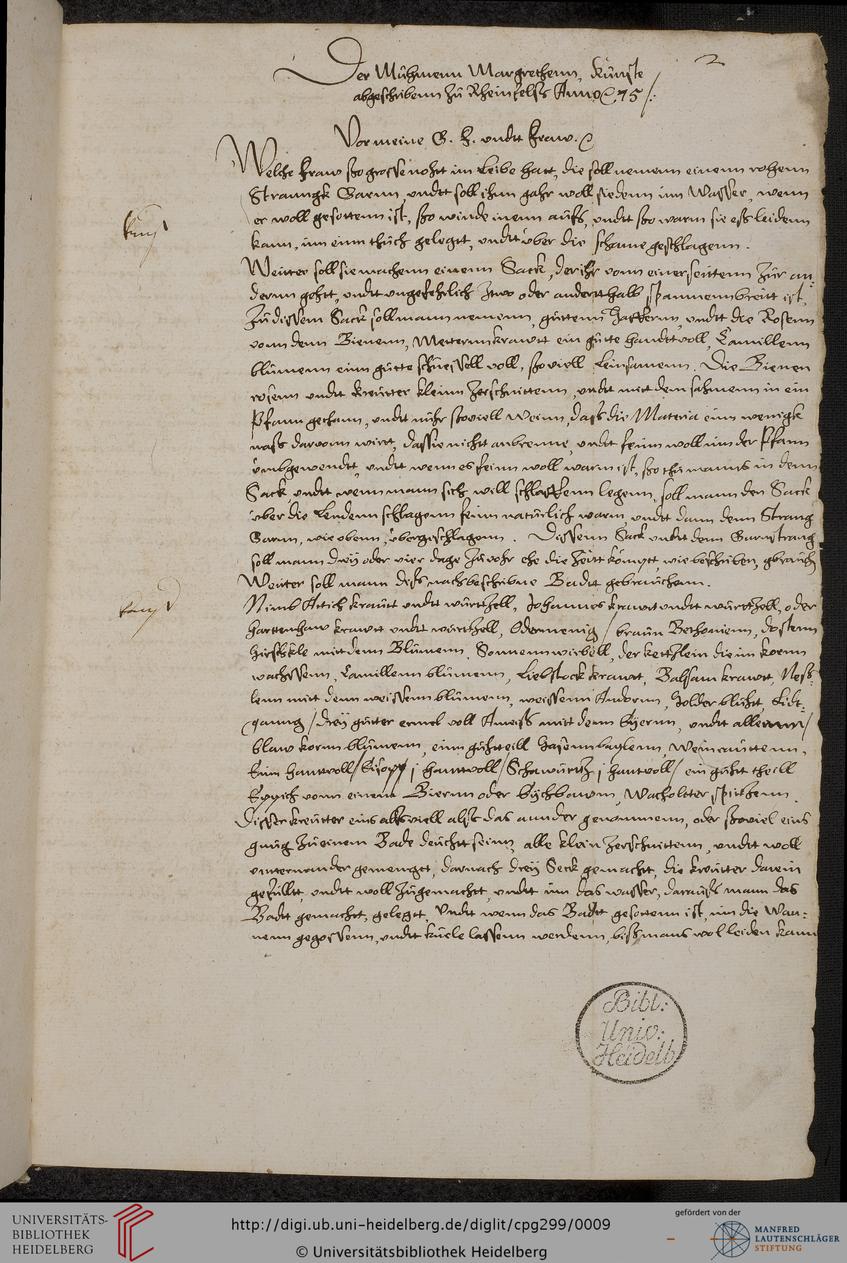 2
Der Muhmenn Margrethenn, Künste
abgeschribenn zu Rheinfelß Anno 75
Vor meine G. F. undt Fraw.
Welche Fraw sso grosse noht im Leibe hatt, die soll nemenn einenn rohenn
Stranngk Garnn, undtt soll ihnn gahr woll siedenn inn Wasser, wenn
er woll gesottenn ist, sso winde inenn auß, undtt sso warm sie eß leidenn
kann, inn einn thuch gelegtt, undtt uber die schame geschlagenn.
Weitter soll sie machenn einenn Sack, der ihr vonn einer seittenn zur an„
dernn gehtt, undtt ungefehrlich zwo oder anderthalb spannenn breitt ist,
Zu dissem Sack soll mann nemenn, guttenn Haffernn, undtt die Rosenn
vonn denn Bienenn, Metternkrautt ein gutte handtvoll, Camillenn
blumenn einn gutte voll, sso viell Leinsamenn. Die Bienen
rosenn undtt kreutter kleinn zerschnittenn, undtt mitt dem sahmenn in ein
Pfann gethann, undtt nuhr sso viell Weinn, daß die Materia ein wenigk
naß darvonn wirtt, das sie nicht anbrenne, undtt feinn woll inn der Pfann
umbgewendtt, undtt wenn es feinn woll warm ist, sso thu manns in denn
Sack, undtt wenn mann sich will schlaffenn legenn, soll mann den Sack
uber die Lendenn schlagenn feinn naturlich warm, undtt dann denn Strang
Garnn, wie obenn, ubergeschlagenn. Dissenn Sack undtt denn Garnstrang
soll mann drey oder vier dage zuvohr ehe die zeitt kömptt, wie beschriben, gbrauchen
Weitter soll mann diß nachbeschribne Badtt gebrauchenn.
Nimb Attich krautt undtt wurtzell, Johannes krautt undtt wurtzell, oder
harttenhaw krautt undtt wurtzell, Odermenig / braun Bethonienn, dostenn
mitt denn Blumenn, Sonnenwirbell, der kertzlein die im Koenn
wachssenn, Camillenn blumenn, Liebstock krautt, Balsam krautt, Neß„
lenn mitt denn weissenn blumenn, weissenn Andornn, Holder bluhtt, Eidt„
ganng / drey gutter ermel voll Ameiß mitt denn Eyernn, undtt allemm /
blaw kornn blumenn, einn guhtteill Weinrauttenn,
Einn hanttvoll / Eisopp j hanttvoll / Schawurtz j hanttvoll / ein guht theill
Eppich vonn einem Biernn oder Eychbaum, Wacholtter spitzenn.
Disser kreutter eins alßviell alß das annder genommenn, oder sso viel eins
gnug zu einem Bade deuchtt seinn, alle klein zerschnittenn, undtt woll
unttereinander gemengtt, darnach drey Seck gemacht, die kreutter darein
gefulltt, undtt woll zugemachtt, undtt inn das wasser, darauß mann das
Badtt gemachtt, gelegtt, Undtt wenn das Badtt gesottenn ist, inn die Wan„
nenn gegossenn, undtt kuele lassenn werdenn, biß mans wol leiden kann
Bibl:
Univ:
Heidelb
UNIVERSITÄTS-
BIBLIOTHEK
HEIDELBERG
http://digi.ub.uni-heidelberg.de/diglit/cpg299/0009
© Universitätsbibliothek Heidelberg
gefördert von der
MANFRED
LAUTENSCHLÄGER
STIFTUNG